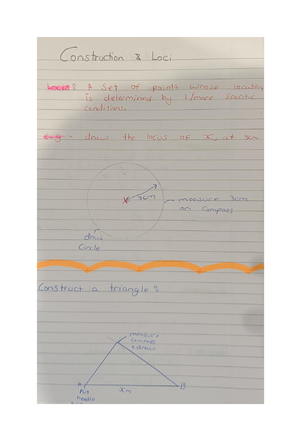 Construction & Loci
Locus: A Set of points whose location
is determined by 1/more specific
conditions.
e.g - draw the locus of X, at 3cm
X
3cm
measure 3cm
on Compass
draw
Circle
Construct a triangle:
measure
compass
& draw
A
B
Put
needle